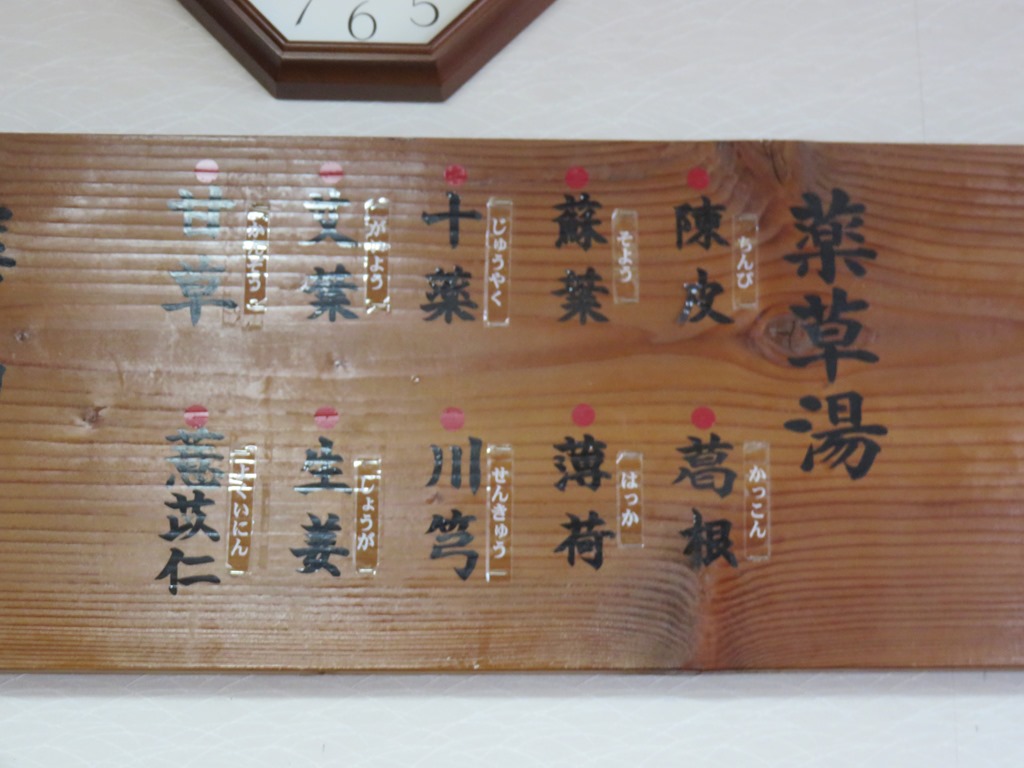 薬草湯
陳皮
ちんぴ
蘇葉
そよう
十薬
じゅうやく
艾葉
がいよう
甘草
かんぞう
葛根
かっこん
薄荷
はっか
川芎
せんきゅう
生姜
しょうが
薏苡仁
よくいにん
7 6 5